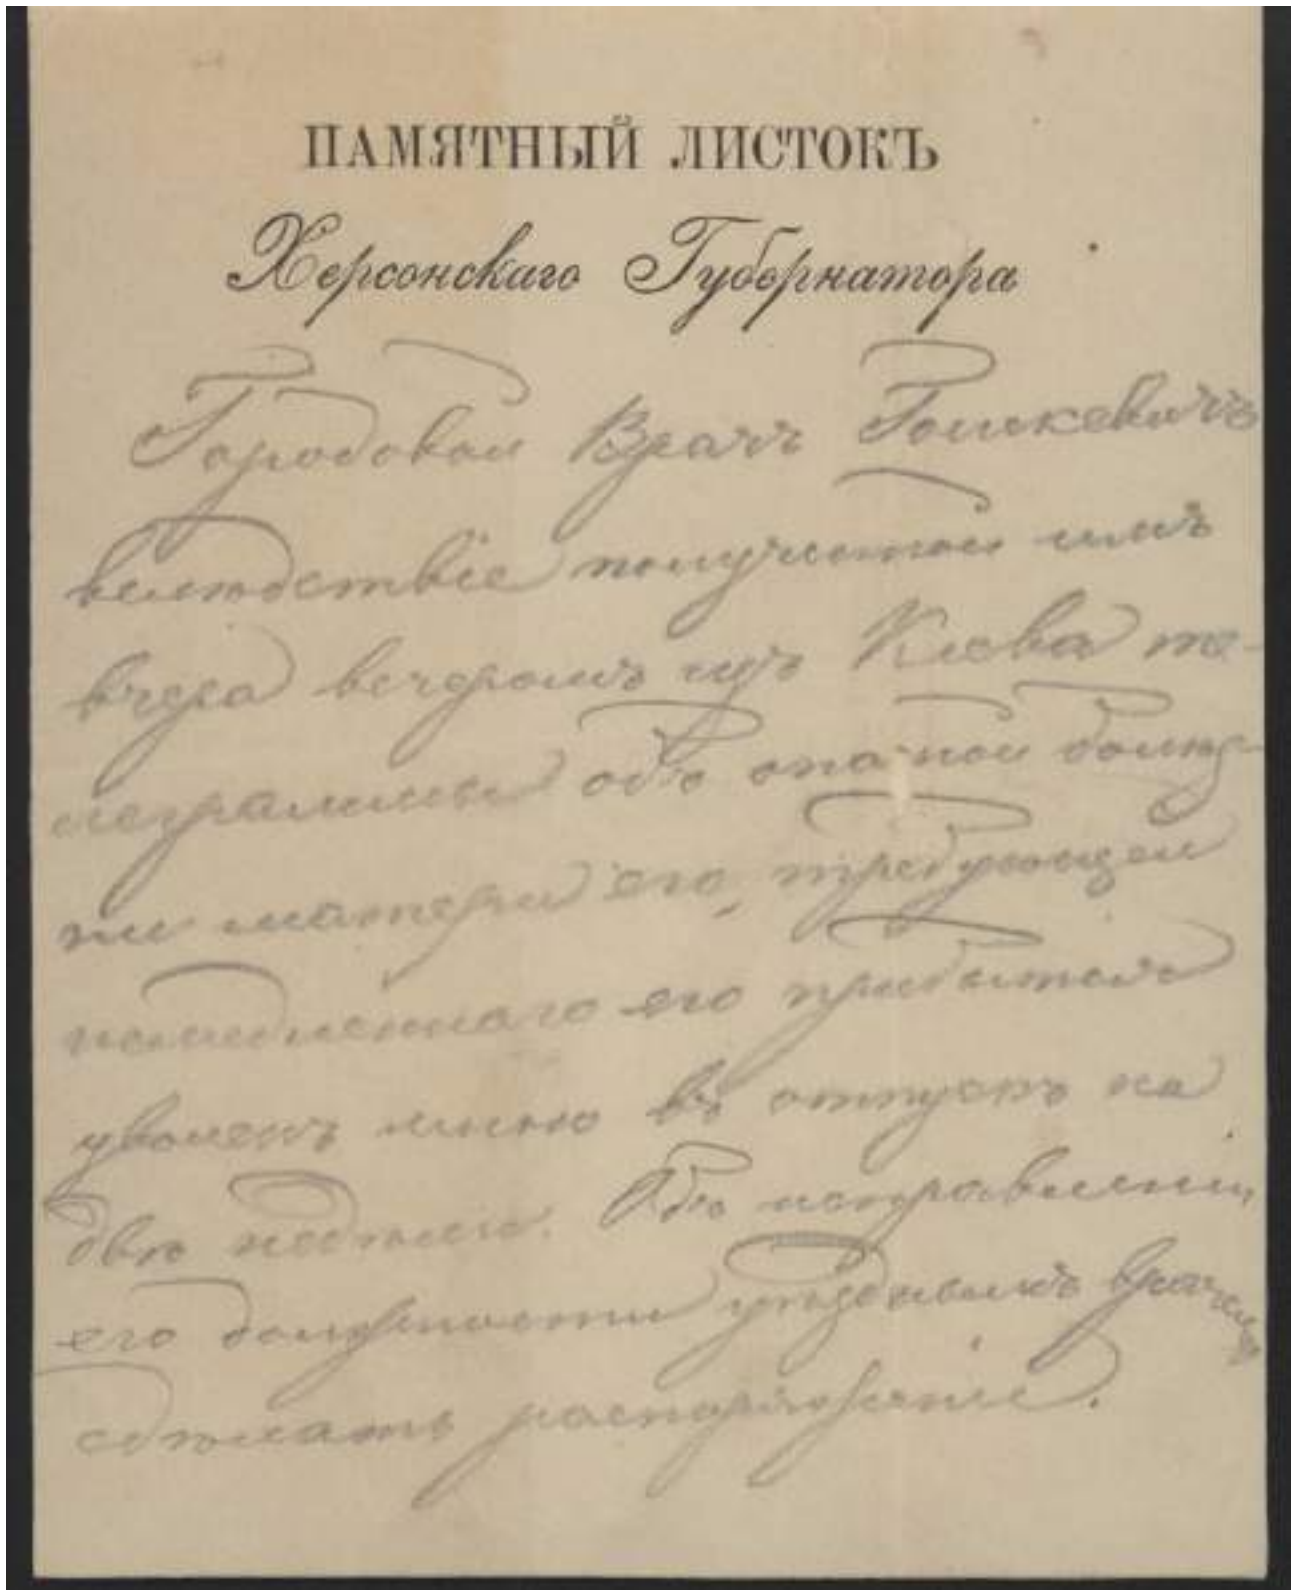 ПАМЯТНЫЙ ЛИСТОКЪ
Херсонскаго Губернатора
Городовой Врачъ Гошкевичъ
вслѣдствіе полученной имъ
вчера вечеромъ изъ Кіева те-
леграммы объ опасной болѣз-
ни матери его, требующей
немедленнаго его прибытія
уволенъ мною въ отпускъ на
двѣ недѣли. Объ исправленіи
его должности уѣзднымъ врачемъ
сдѣлать распоряженіе.